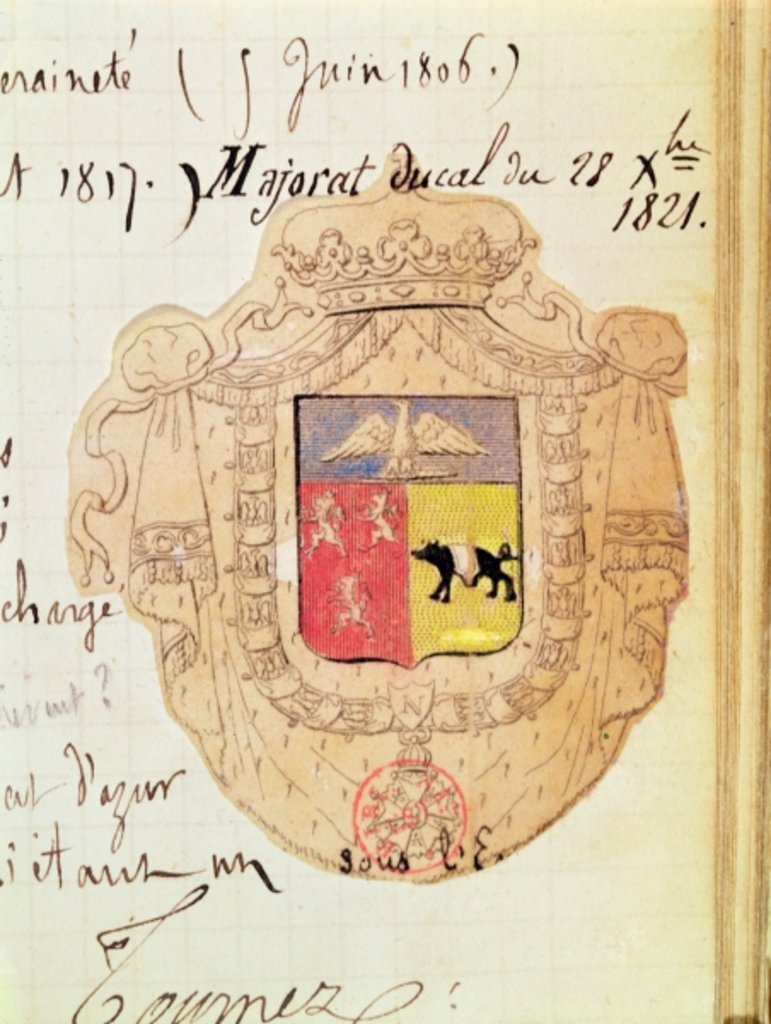 eraineté (5 Juin 1806.)
t 1817.) Majorat ducal du 28 Xbre
1821.
s
;
charge
N
at d'azur
s'étant un
sous l'E.
Tournez :